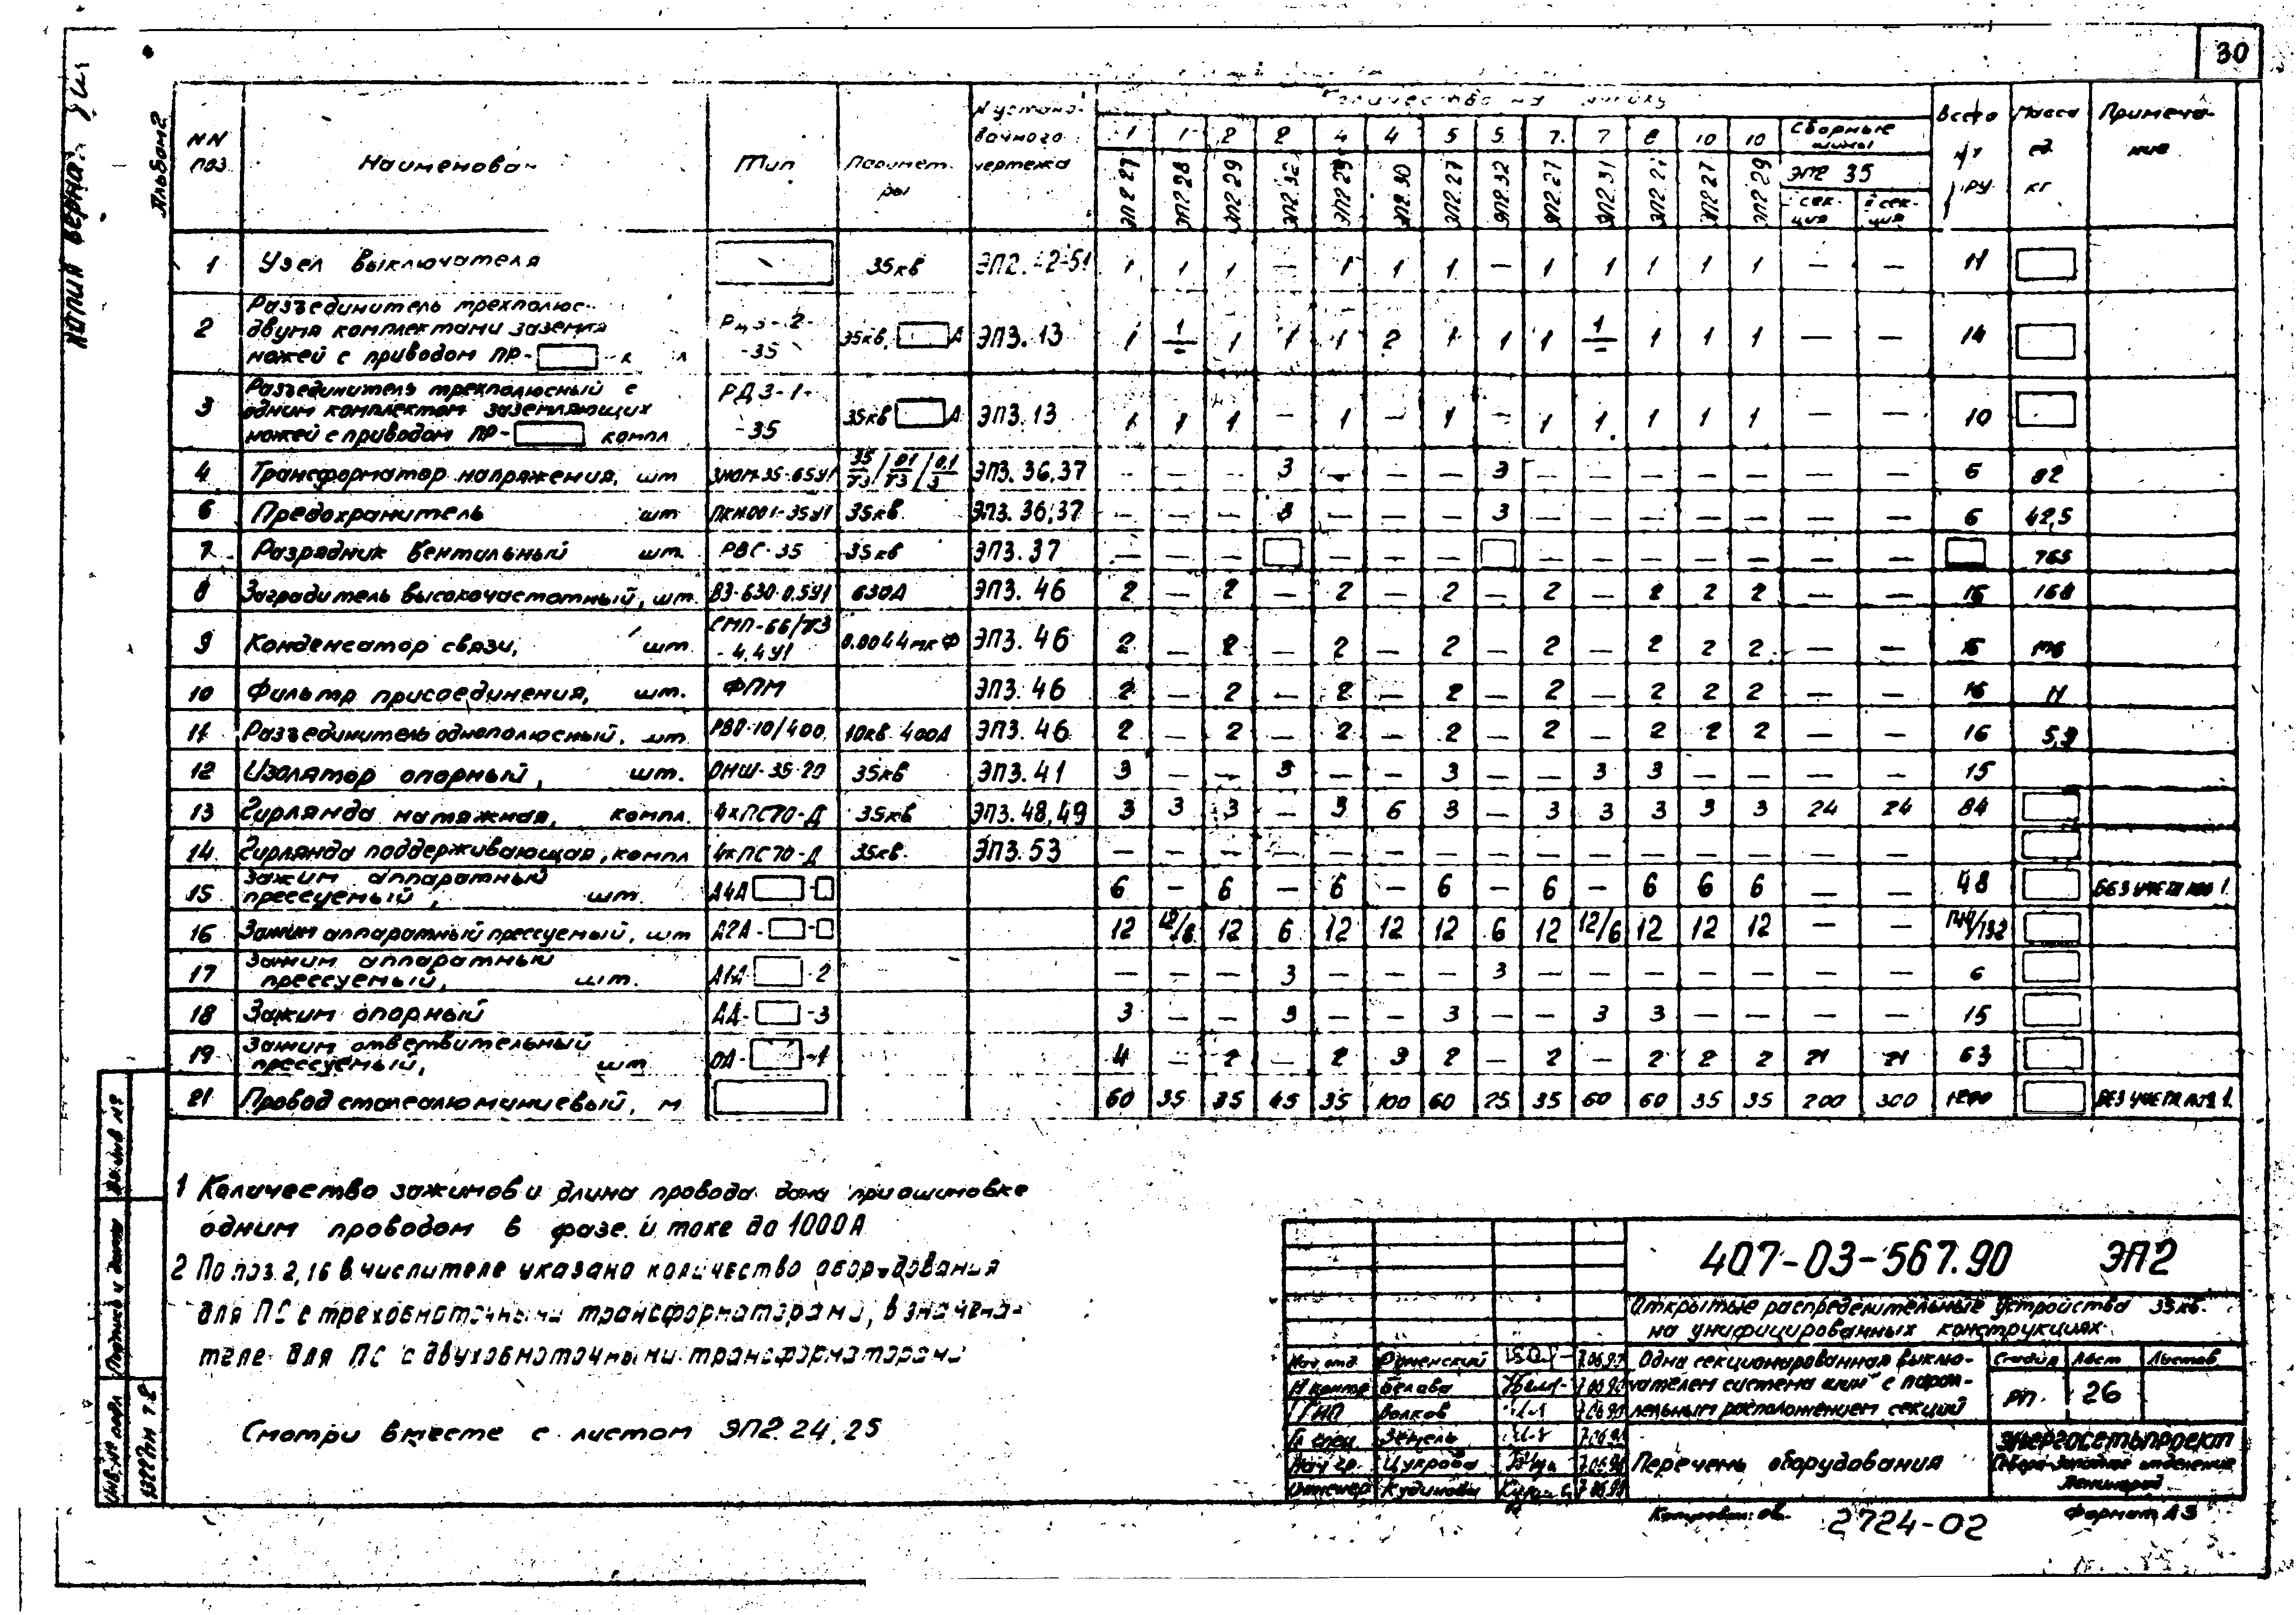 30
Копия верна:
Альбом 2
NN поз. | Наименован | Тип | Парамет-ры | N устано-вочного чертежа | Количество на | Всего РУ | Масса ед. кг | Примеча-ние
1 | 1 | 2 | 2 | 4 | 4 | 5 | 5 | 7 | 7 | 8 | 10 | 10 | Сборные шины
ЭП2.27 | ЭП2.28 | ЭП2.29 | ЭП2.32 | ЭП2.29 | ЭП2.30 | ЭП2.27 | ЭП2.32 | ЭП2.27 | ЭП2.31 | ЭП2.27 | ЭП2.27 | ЭП2.29 | ЭП2 35
сек-ция | II сек-ция
1 | Узел выключателя | 35кв | ЭП2.42-51 | 1 | 1 | 1 | — | 1 | 1 | 1 | — | 1 | 1 | 1 | 1 | 1 | — | — | 11
2 | Разъединитель трехполюс- двумя комплектами заземля ножей с приводом ПР- | -2- -35 | 35кв, А | ЭП3.13 | 1 | 1/- | 1 | 1 | 1 | 2 | 1 | 1 | 1 | 1/- | 1 | 1 | 1 | — | — | 14
3 | Разъединитель трехполюсный с одним комплектом заземляющих ножей с приводом ПР- компл | РДЗ-1- -35 | 35кв А | ЭП3.13 | 1 | 1 | 1 | — | 1 | — | 1 | — | 1 | 1 | 1 | 1 | 1 | — | — | 10
4 | Трансформатор напряжения, шт | ЗНОМ-35-65У1 | 35/√3 / 0,1/√3 / 0,1/3 | ЭП3.36,37 | — | — | — | 3 | — | — | — | 3 | — | — | — | — | — | — | — | 6 | 82
6 | Предохранитель шт | ПКН001-35У1 | 35кв | ЭП3.36,37 | — | — | — | 3 | — | — | — | 3 | — | — | — | — | — | — | — | 6 | 42,5
7 | Разрядник вентильный шт. | РВС-35 | 35кв | ЭП3.37 | — | — | — | — | — | — | — | — | — | — | — | — | — | 765
8 | Заградитель высокочастотный, шт. | ВЗ-630-0,5У1 | 630А | ЭП3.46 | 2 | — | 2 | — | 2 | — | 2 | — | 2 | — | 2 | 2 | 2 | — | — | 16 | 168
9 | Конденсатор связи, шт | СМП-66/√3 -4,4У1 | 0.0044мкФ | ЭП3.46 | 2 | — | 2 | — | 2 | — | 2 | — | 2 | — | 2 | 2 | 2 | — | —
10 | Фильтр присоединения, шт. | ФПМ | ЭП3.46 | 2 | — | 2 | — | 2 | — | 2 | — | 2 | — | 2 | 2 | 2 | — | — | 16 | 11
11 | Разъединитель однополюсный, шт. | РВО-10/400 | 10кв 400А | ЭП3.46 | 2 | — | 2 | — | 2 | — | 2 | — | 2 | — | 2 | 2 | 2 | — | — | 16 | 5,9
12 | Изолятор опорный, шт. | ОНШ-35-20 | 35кв | ЭП3.41 | 3 | — | — | 3 | — | — | 3 | — | — | 3 | 3 | — | — | — | — | 15
13 | Гирлянда натяжная, компл. | 4хПС70-Д | 35кв | ЭП3.48,49 | 3 | 3 | 3 | — | 3 | 6 | 3 | — | 3 | 3 | 3 | 3 | 3 | 24 | 24 | 84
14 | Гирлянда поддерживающая, компл | 4хПС70-Д | 35кв. | ЭП3.53 | — | — | — | — | — | — | — | — | — | — | — | — | — | — | —
15 | Зажим аппаратный прессуемый, шт. | А4А - | 6 | — | 6 | — | 6 | — | 6 | — | 6 | — | 6 | 6 | 6 | — | — | 48 | БЕЗ УЧЕТА 1.
16 | Зажим аппаратный прессуемый, шт | А2А- - | 12 | 12/6 | 12 | 6 | 12 | 12 | 12 | 6 | 12 | 12/6 | 12 | 12 | 12 | — | — | 144/132
17 | Зажим аппаратный прессуемый, шт. | А1А -2 | — | — | — | 3 | — | — | — | 3 | — | — | — | — | — | — | — | 6
18 | Зажим опорный | АА- -3 | 3 | — | — | 3 | — | — | 3 | — | — | 3 | 3 | — | — | — | — | 15
19 | Зажим ответвительный прессуемый, шт | ОА- -1 | 4 | — | 2 | — | 2 | 3 | 2 | — | 2 | — | 2 | 2 | 2 | 21 | 21 | 63
21 | Провод сталеалюминиевый, м | 60 | 35 | 35 | 45 | 35 | 100 | 60 | 25 | 35 | 60 | 60 | 35 | 35 | 200 | 300 | БЕЗ УЧЕТА 1.
1 Количество зажимов и длина провода дана при ошиновке
одним проводом в фазе и токе до 1000А
2 По поз. 2,16 в числителе указано количество оборудования
для ПС с трехобмоточными трансформаторами, в знамена-
теле для ПС с двухобмоточными трансформаторами
Смотри вместе с листом ЭП2.24,25
Вз. инв №
Подпись и дата
Инв. № подл
407-03-567.90 ЭП2
Открытые распределительные устройства 35кв.
на унифицированных конструкциях.
Нач. отд. | Роменский | 7.06.90
Н контр | Белова | 7.06.90
ГИП | Волков | 7.06.90
Гл спец | 7.06.90
Нач гр. | 7.06.90
Инженер | 7.06.90
Одна секционированная выклю-
чателем система шин с парал-
лельным расположением секций
Стадия | Лист | Листов
РП. | 26
Перечень оборудования
ЭНЕРГОСЕТЬПРОЕКТ
Северо-Западное отделение
Ленинград
2724-02
Формат А3